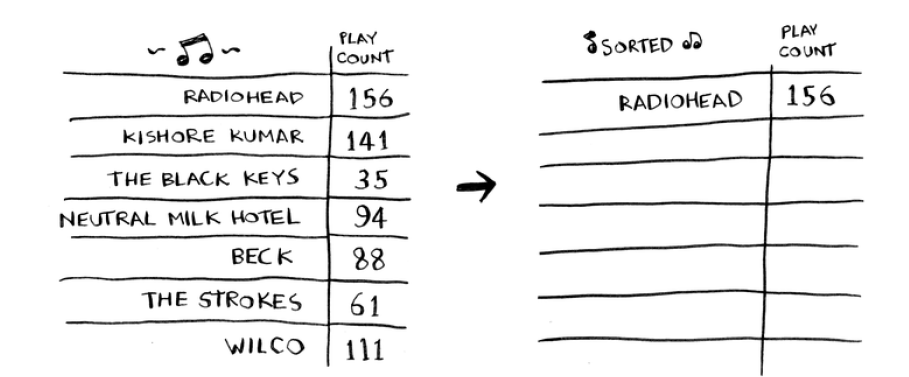 PLAY
COUNT
RADIOHEAD 156
KISHORE KUMAR 141
THE BLACK KEYS 35
NEUTRAL MILK HOTEL 94
BECK 88
THE STROKES 61
WILCO 111
SORTED
PLAY
COUNT
RADIOHEAD 156